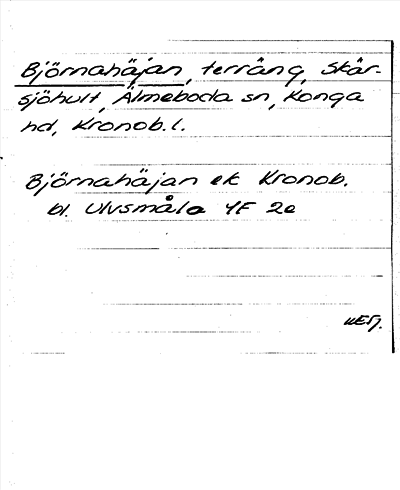 Björnahäjan, terräng, Skår-
sjöhult, Älmeboda sn, Konga
hd, Kronob. l.
Björnahäjan ek Kronob.
bl. Ulvsmåla 4F 2e